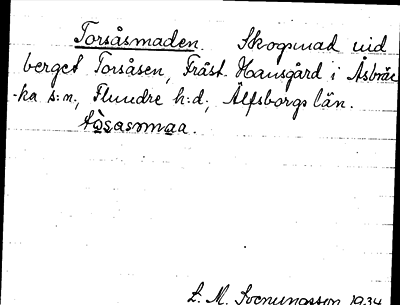 Torsåsmaden. Skogsmad vid
berget Torsåsen, Fräst. Hansgård i Åsbräc
-ka s:n, Flundre h:d, Älfsborgs län.
tòsasmaa.
L. M. Svenungsson 1934